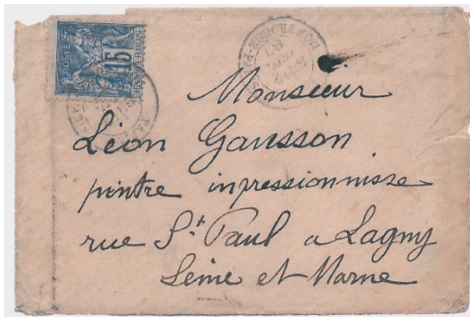 15
Monsieur
Léon Gausson
peintre inpressionnisze
rue St Paul a Lagny
Seine et Marne